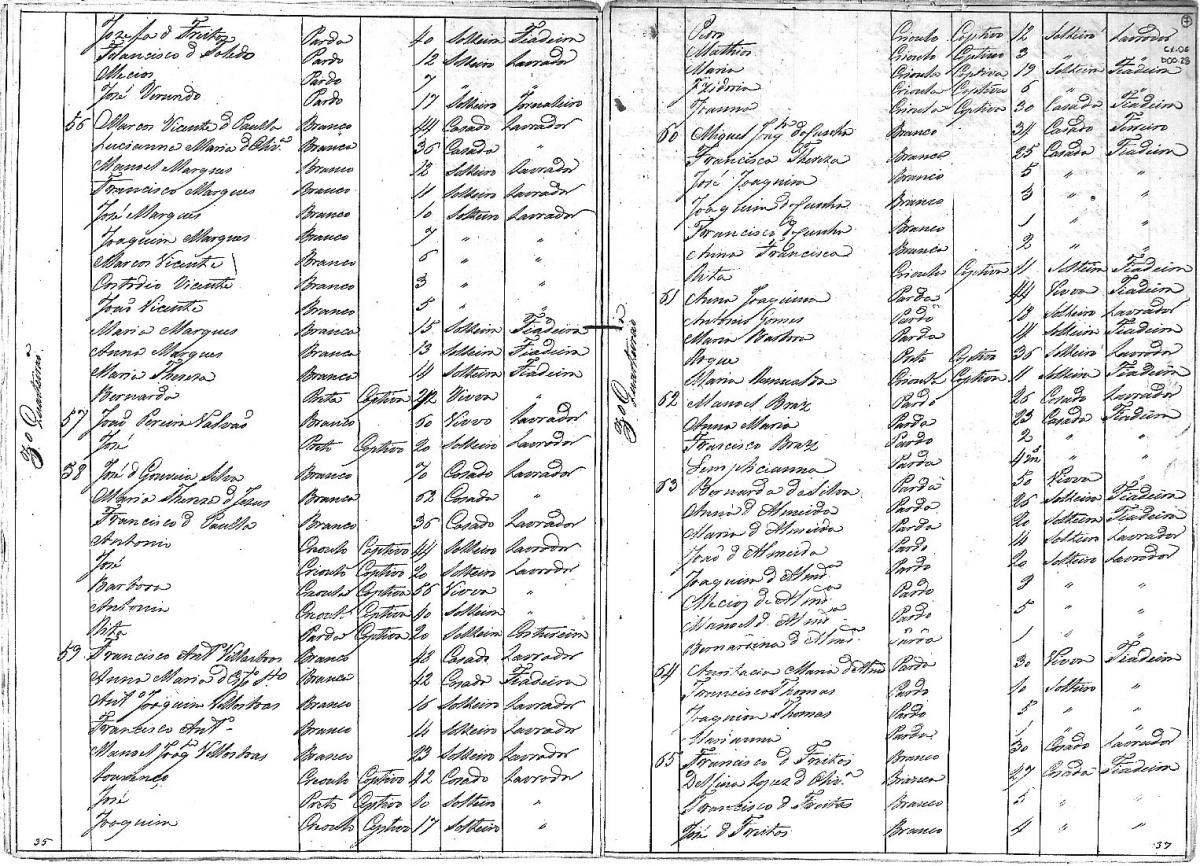 Jozefa d Freitas Parda 40 Solteira Fiadeira
Francisco d Toledo Pardo 12 Solteiro Lavrador
Mecias Pardo 7 "
José Pardo 17 Solteiro Jornaleiro
56 Marcos Vicente d Paulla Branco 44 Casado Lavrador
Lucianna Maria d Olivra Branca 36 Casada "
Manoel Marques Branco 12 Solteiro Lavrador
Francisco Marques Branco 11 Solteiro Lavrador
José Marques Branco 10 Solteiro Lavrador
Joaquim Marques Branco 7 " "
Marcos Vicente Branco 6 " "
Custodio Vicente Branco 3 " "
João Vicente Branco 5 " "
Maria Marques Branca 15 Solteira Fiadeira
Anna Marques Branca 13 Solteira Fiadeira
Maria Thereza Branca 14 Solteira Fiadeira
Bernarda Preta Captiva Viuva "
57 João Pereira Valvão Branco 60 Viuvo Lavrador
José Preto Captivo 20 Solteiro Lavrador
38 José d Gouveia Silva Branco 70 Casado Lavrador
Maria Thereza d Jezus Branca 62 Casada "
Francisco d Paulla Branco 36 Casado Lavrador
Antonio Crioulo Captivo 44 Solteiro Lavrador
José Crioulo Captivo 20 Solteiro Lavrador
Barbora Crioula Captiva 56 Viuva "
Antonia Crioula Captiva 40 Solteira "
Rita Parda Captiva 20 Solteira Costureira
59 Francisco Anto Villasboas Branco 48 Casado Lavrador
Anna Maria d Branca 42 Casada Fiadeira
Anto Joaquim Villasboas Branco 16 Solteiro Lavrador
Francisco Anto Branco 14 Solteiro Lavrador
Manoel Joaq Villasboas Branco 23 Solteiro Lavrador
Lourenço Crioulo Captivo 42 Casado Lavrador
José Preto Captivo 10 Solteiro "
Joaquim Crioulo Captivo 17 Solteiro "
3o Quarteirão
35
Pedro Crioulo Captivo 12 Solteiro Lavrador
Matheos Crioulo Captivo 3 " "
Maria Crioula Captiva 19 Solteira Fiadeira
Izidoria Crioula Captiva 6 " "
Joanna Crioula Captiva 30 Casada Fiadeira
60 Miguel Joaq da Cunha Branco 34 Casado Ferreiro
Francisca Thereza Branca 25 Casada Fiadeira
José Joaquim Branco 5 " "
Joaquim da Cunha Branco 3 " "
Francisco da Cunha Branco 1 " "
Anna Francisca Branca 2 " "
Rita Crioula Captiva 11 Solteira Fiadeira
61 Anna Joaquina Parda 44 Viuva Fiadeira
Antonio Gomes Pardo 18 Solteiro Lavrador
Maria Barbora Parda 14 Solteira Fiadeira
Roque Preto Captivo 36 Solteiro Lavrador
Maria Crioula Captiva 11 Solteira Fiadeira
62 Manoel Braz Pardo 26 Casado Lavrador
Anna Maria Parda 23 Casada Fiadeira
Francisco Braz Pardo 2 " "
Simpliciana Parda 4m " "
63 Bernarda da Silva Parda 50 Viuva "
Anna d Almeida Parda 26 Solteira Fiadeira
Maria d Almeida Parda 20 Solteira Fiadeira
João d Almeida Pardo 14 Solteiro Lavrador
Joaquim d Almda Pardo 20 Solteiro Lavrador
Mecias de Almda Pardo 9 " "
Manoel d Almda Pardo 5 " "
Bernardina d Almda Parda 1 " "
64 Anastacia Maria d Almd Parda 30 Viuva Fiadeira
Francisco Thomas Pardo 10 Solteiro "
Joaquim Thomas Pardo 5 " "
Marianna Parda 1 " "
65 Francisco d Freitas Branco 30 Casado Lavrador
Delfina Lopes d Olivra Branca 27 Casada Fiadeira
Francisco d Freitas Branco 5 " "
José d Freitas Branco 4 " "
3o Quarteirão
CX.06
DOC.28
37